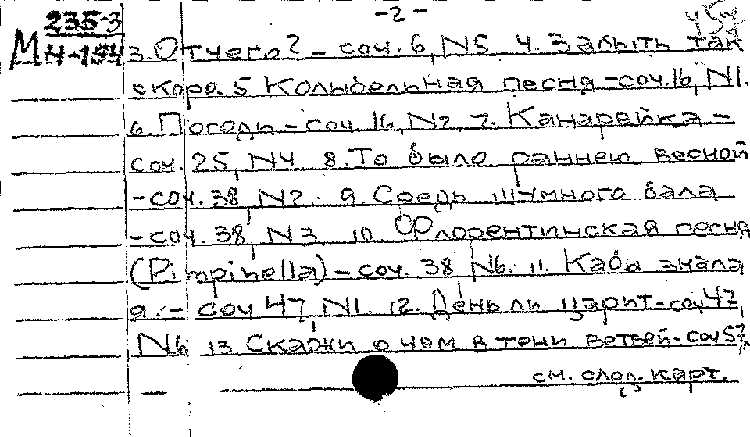 -2-
М 235-3
Н-194 3. Отчего? - соч. 6, N5 4. Забыть так
скоро. 5 Колыбельная песня - соч. 16, N1.
6. Погоди - соч. 16, N2 7. Канарейка -
соч. 25, N4 8. То было раннею весной
- соч. 38, N2. 9. Средь шумного бала
- соч. 38, N3 10. Флорентинская песня
(Pimpinella) - соч. 38 N6. 11. Кабы знала
я. - соч 47, N1. 12. День ли царит - соч 47,
N6 13 Скажи о чем в тени ветвей - соч 57,
см. след. карт.